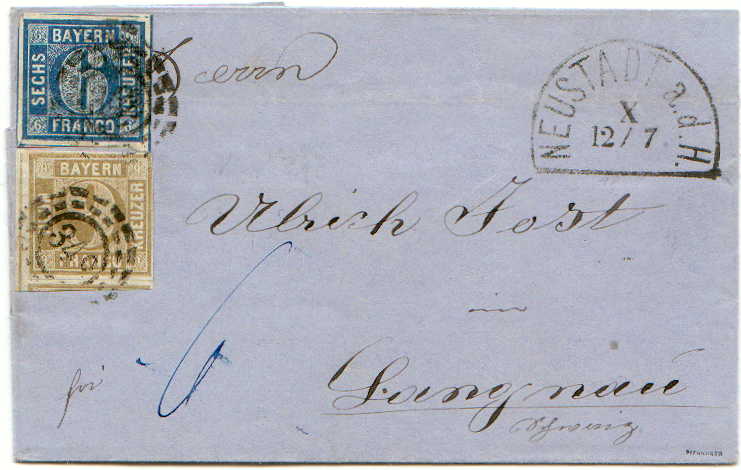 BAYERN
SECHS
KREUZER
FRANCO
6
BAYERN
KREUZER
Herrn
NEUSTADT a.d.H.
X
12 / 7
Ulrich Jost
in
6
Langnau
Schweiz